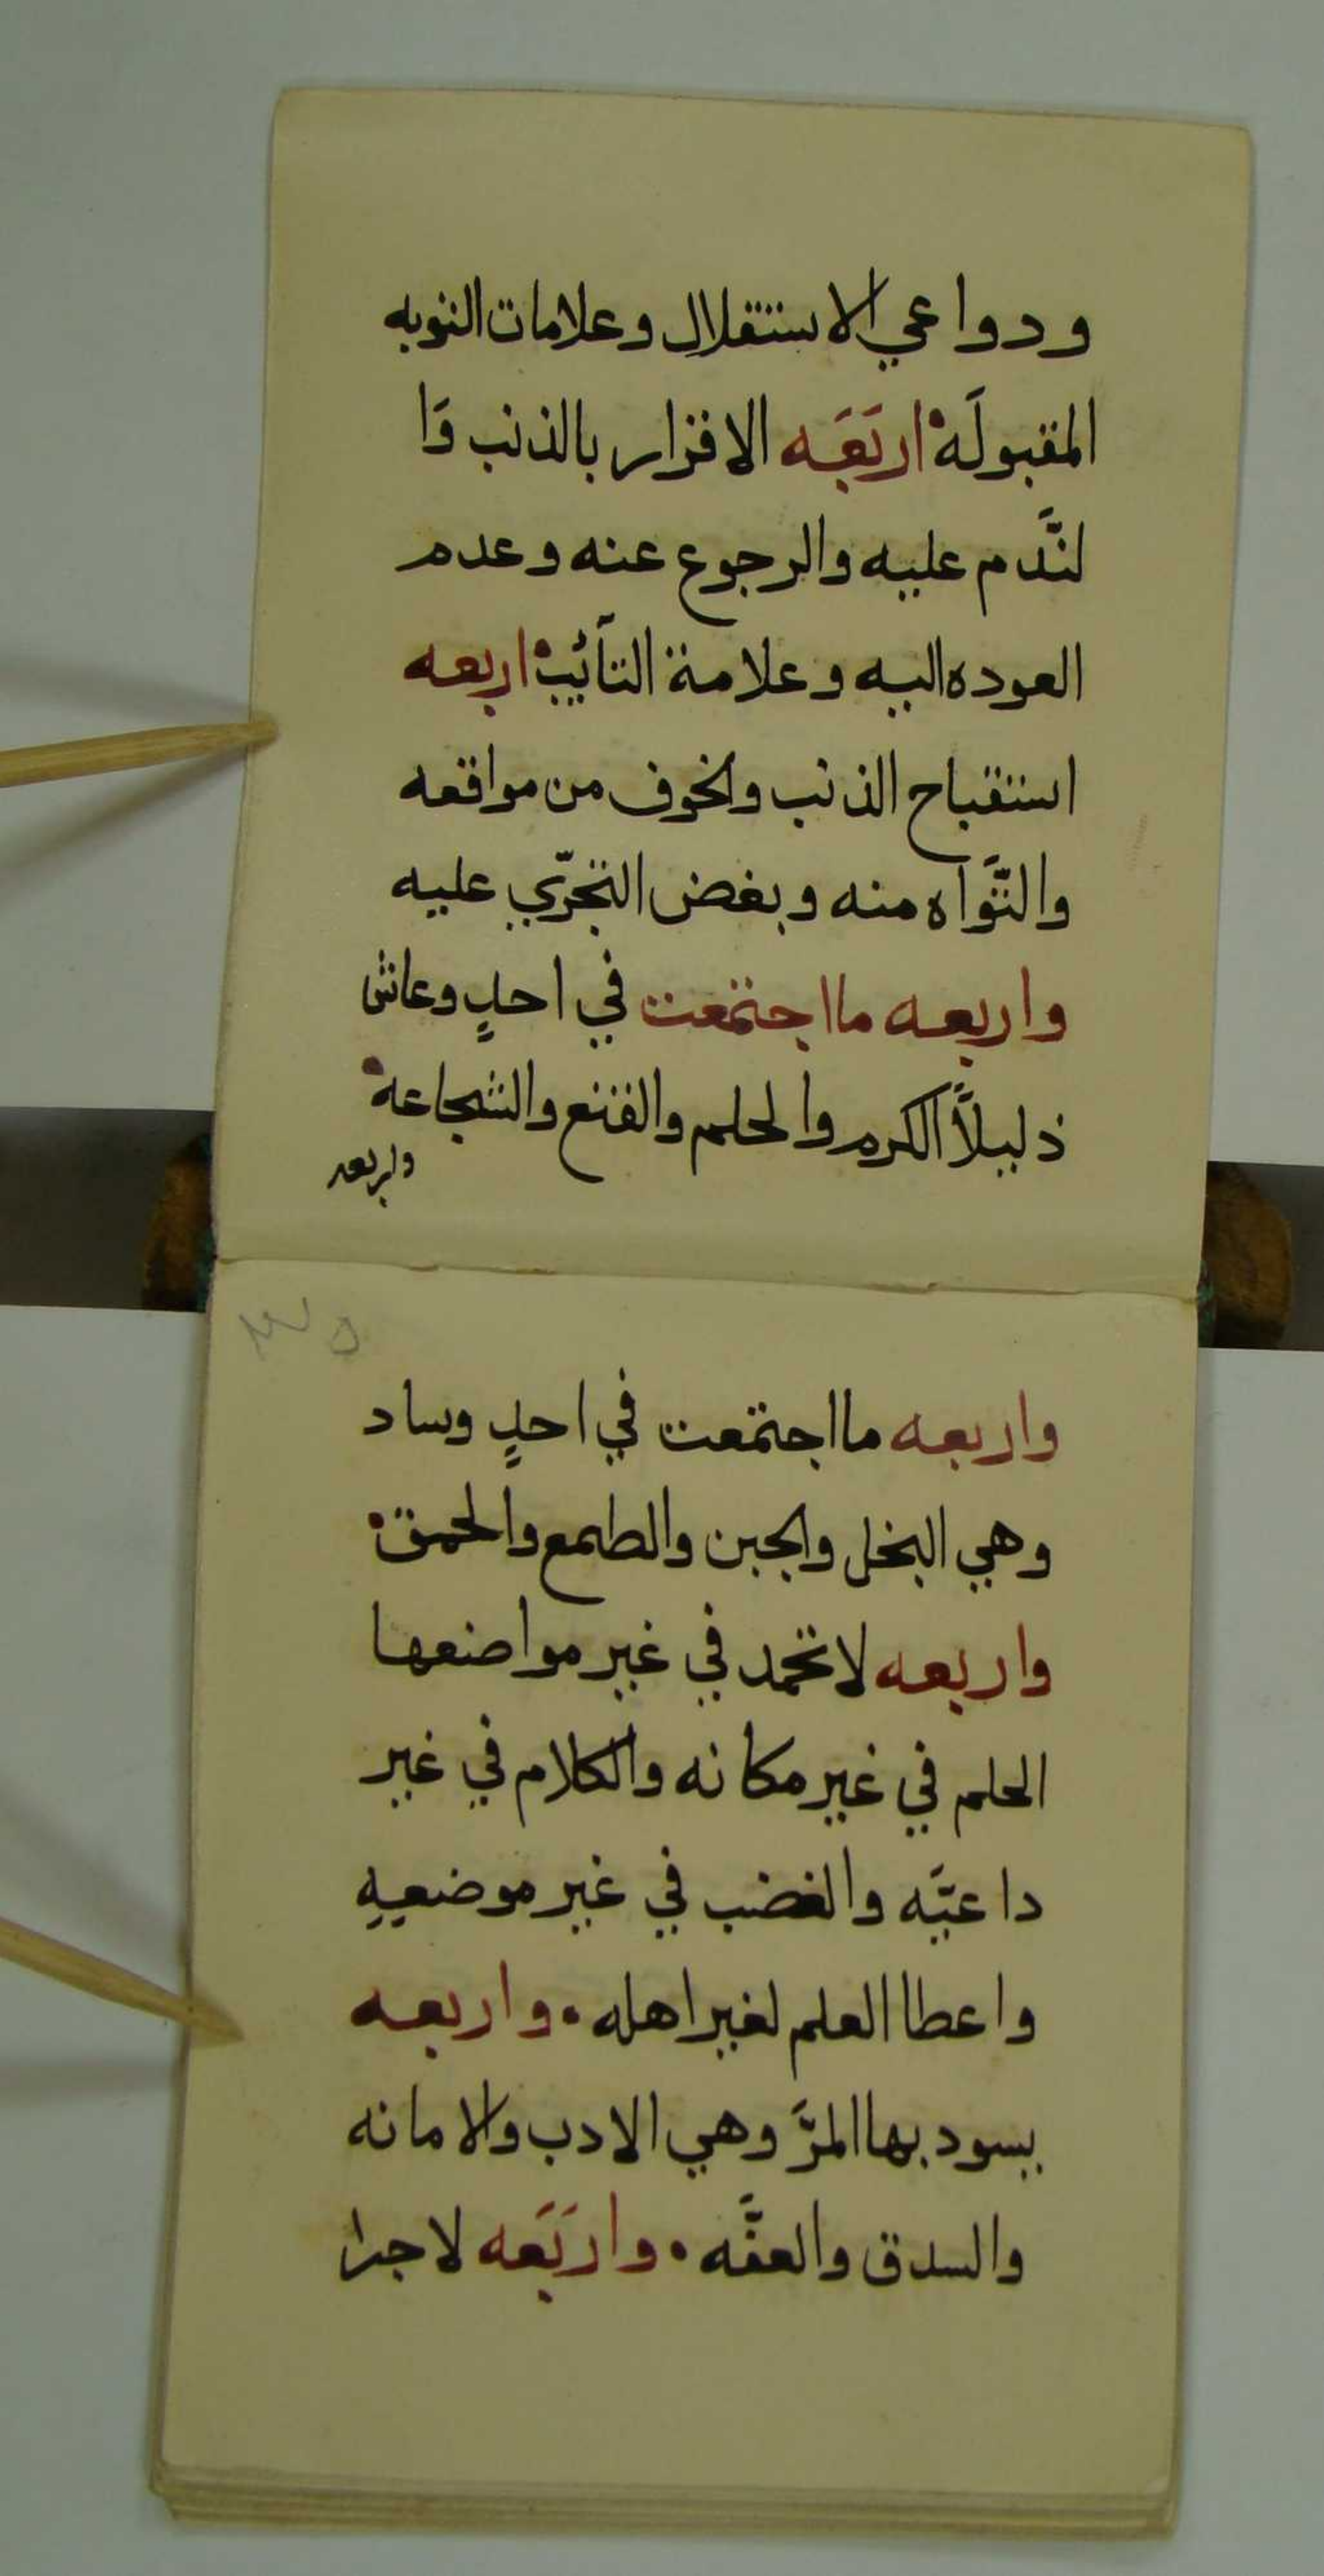 ودواعي الاستقلال وعلامات التوبه
المقبولَه اربَعَه الاقرار بالذنب وَا
لنَّدم عليه والرجوع عنه وعدم
العوده اليه وعلامة التآئب اربعه
استقباح الذنب والخوف من مواقعه
والتَّوَاه منه وبغض التجرّي عليه
واربعه ما اجتمعت في احدٍ وعاش
ذليلاً الكرم والحلم والقنع والشجاعه
واربعه
واربعه ما اجتمعت في احدٍ وساد
وهي البخل والجبن والطمع والحمق
واربعه لا تحمد في غير مواضعها
الحلم في غير مكانه والكلام في غير
داعيَّه والغضب في غير موضعِهِ
واعطا العلم لغير اهله واربعه
يسود بها المرَّ وهي الادب والامانه
والسدق والعفَّه واربَعَه لاجرا